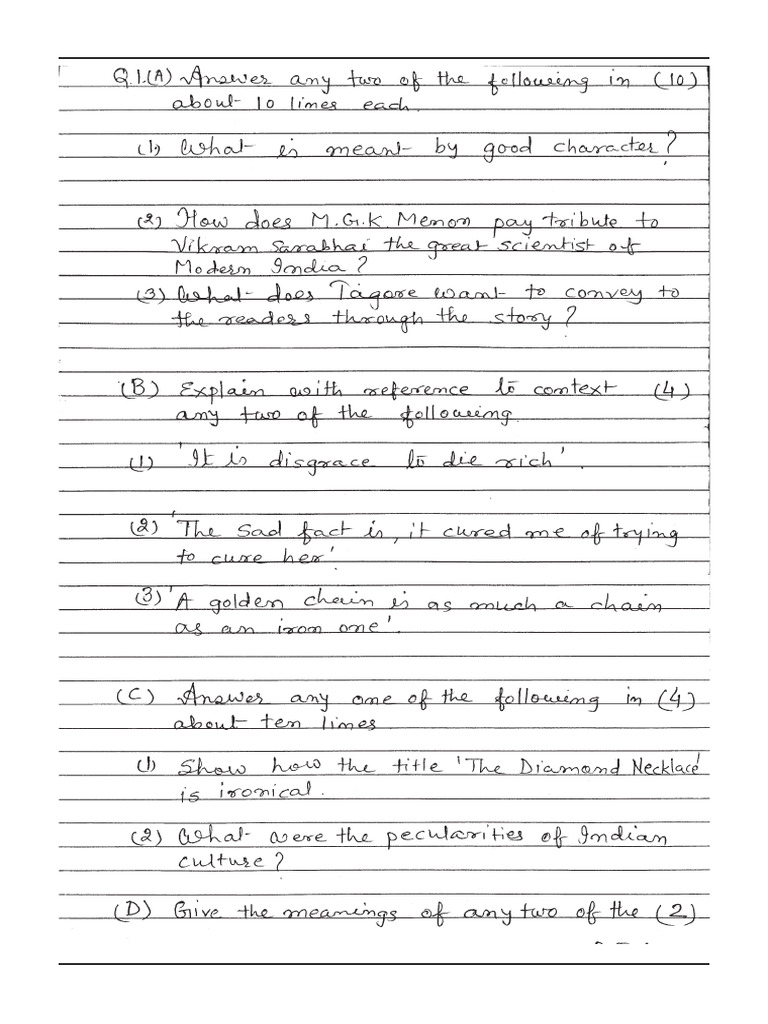 Q.1.(A) Answer any two of the following in (10)
about 10 lines each.
(1) What is meant by good character?
(2) How does M.G.K. Menon pay tribute to
Vikram Sarabhai the great scientist of
Modern India?
(3) What does Tagore want to convey to
the readers through the story?
(B) Explain with reference to context (4)
any two of the following
(1) 'It is disgrace to die rich'.
(2) 'The sad fact is, it cured me of trying
to cure her'.
(3) 'A golden chain is as much a chain
as an iron one'.
(C) Answer any one of the following in (4)
about ten lines
(1) Show how the title 'The Diamond Necklace'
is ironical.
(2) What were the pecularities of Indian
culture?
(D) Give the meanings of any two of the (2)